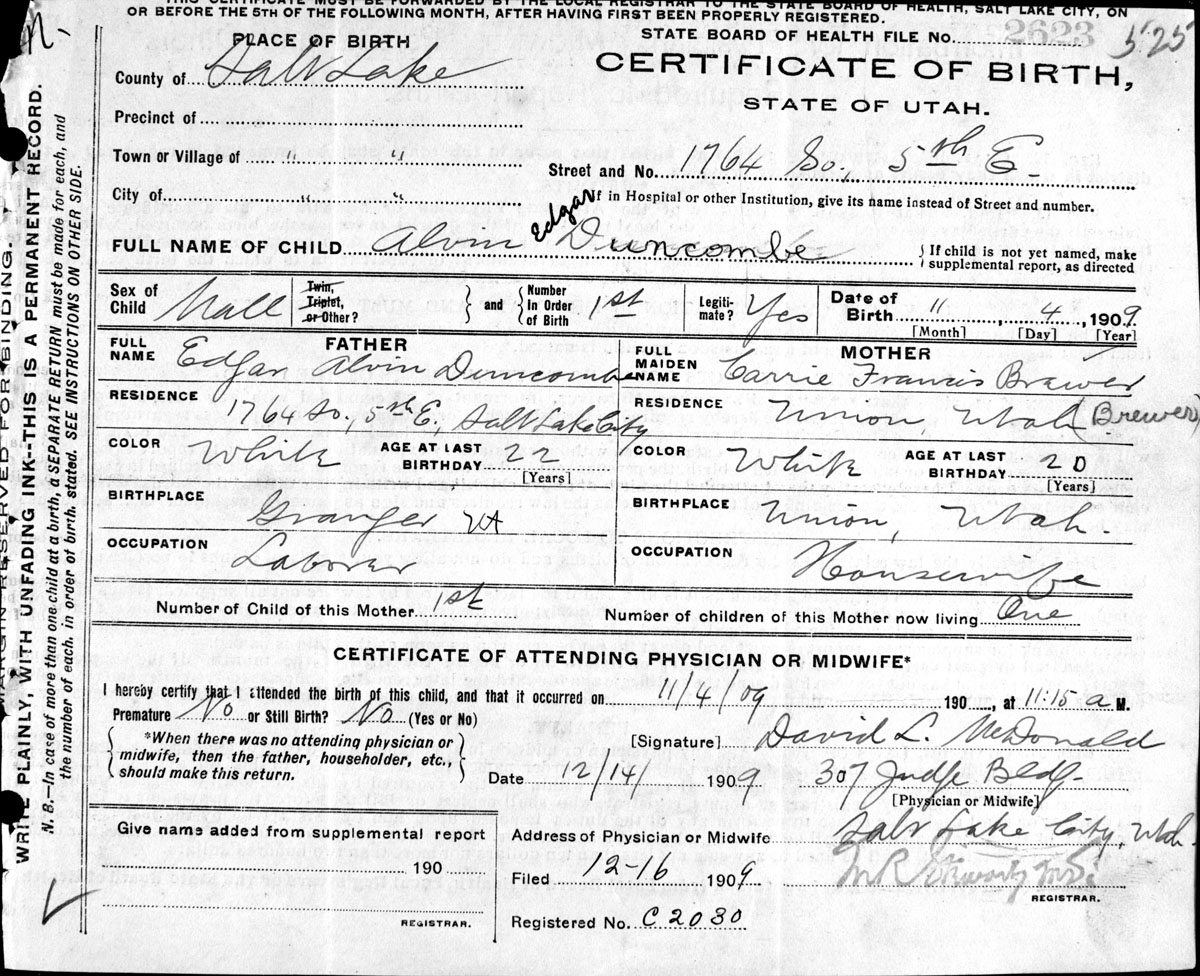 THIS CERTIFICATE MUST BE FORWARDED BY THE LOCAL REGISTRAR TO THE STATE BOARD OF HEALTH, SALT LAKE CITY, ON
OR BEFORE THE 5TH OF THE FOLLOWING MONTH, AFTER HAVING FIRST BEEN PROPERLY REGISTERED.
STATE BOARD OF HEALTH FILE No. 2623 525
PLACE OF BIRTH
CERTIFICATE OF BIRTH,
STATE OF UTAH.
County of Salt Lake
Precinct of
Town or Village of " "
Street and No. 1764 So., 5th E.
City of " "
If in Hospital or other Institution, give its name instead of Street and number.
FULL NAME OF CHILD Alvin Edgar Duncombe
If child is not yet named, make supplemental report, as directed
Sex of Child Male Twin, Triplet, or Other? and Number In Order of Birth 1st Legiti-mate? Yes Date of Birth 11, 4, 1909
[Month] [Day] [Year]
FATHER MOTHER
FULL NAME Edgar Alvin Duncombe FULL MAIDEN NAME Carrie Francis Brawer
RESIDENCE 1764 So., 5th E., Salt Lake City RESIDENCE Union, Utah (Brewer)
COLOR White AGE AT LAST BIRTHDAY 22 [Years] COLOR White AGE AT LAST BIRTHDAY 20 [Years]
BIRTHPLACE Granger Ut BIRTHPLACE Union, Utah.
OCCUPATION Laborer OCCUPATION Housewife
Number of Child of this Mother 1st Number of children of this Mother now living One
CERTIFICATE OF ATTENDING PHYSICIAN OR MIDWIFE*
I hereby certify that I attended the birth of this child, and that it occurred on 11/4/09 190, at 11:15 a M.
Premature No or Still Birth? No (Yes or No)
*When there was no attending physician or midwife, then the father, householder, etc., should make this return.
[Signature] David L. McDonald
Date 12/14/ 1909 307 Judge Bldg.
[Physician or Midwife]
Give name added from supplemental report
190
REGISTRAR.
Address of Physician or Midwife Salt Lake City, Utah.
Filed 12-16 1909
REGISTRAR.
Registered No. C 2030
RESERVED FOR BINDING.
WRITE PLAINLY, WITH UNFADING INK--THIS IS A PERMANENT RECORD.
N. B.—In case of more than one child at a birth, a SEPARATE RETURN must be made for each, and
the number of each, in order of birth, stated. SEE INSTRUCTIONS ON OTHER SIDE.